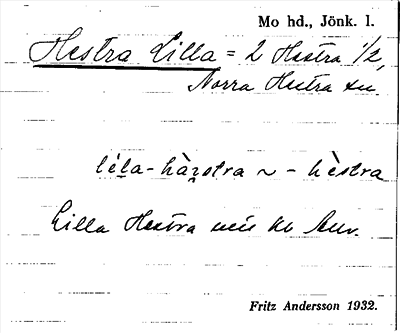 Mo hd., Jönk. l.
Hestra Lilla = 2 Hestra 1/2,
Norra Hestra sn
lìla-hæ̀stra ~ - hèstra
Lilla Hestra
Fritz Andersson 1932.